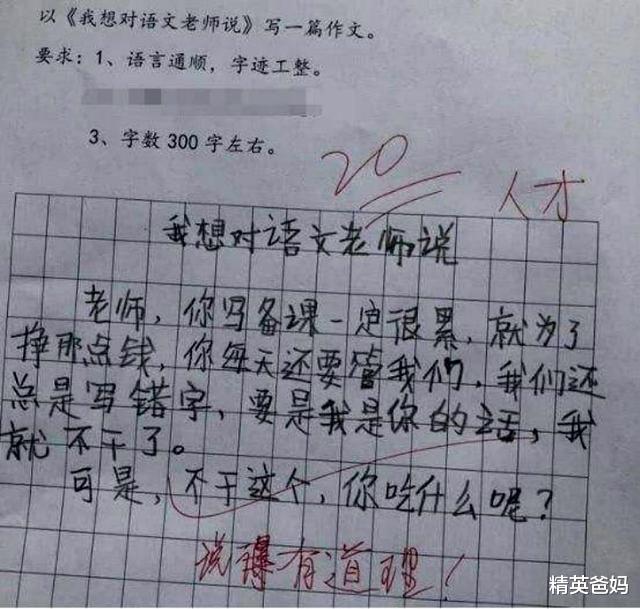 以《我想对语文老师说》写一篇作文。
要求：1、语言通顺，字迹工整。
3、字数300字左右。
20 人才
我想对语文老师说
老师，你写备课一定很累，就为了
挣那点钱，你每天还要管我们，我们还
总是写错字，要是我是你的话，我
就不干了。
可是，不干这个，你吃什么呢？
说得有道理！
精英爸妈